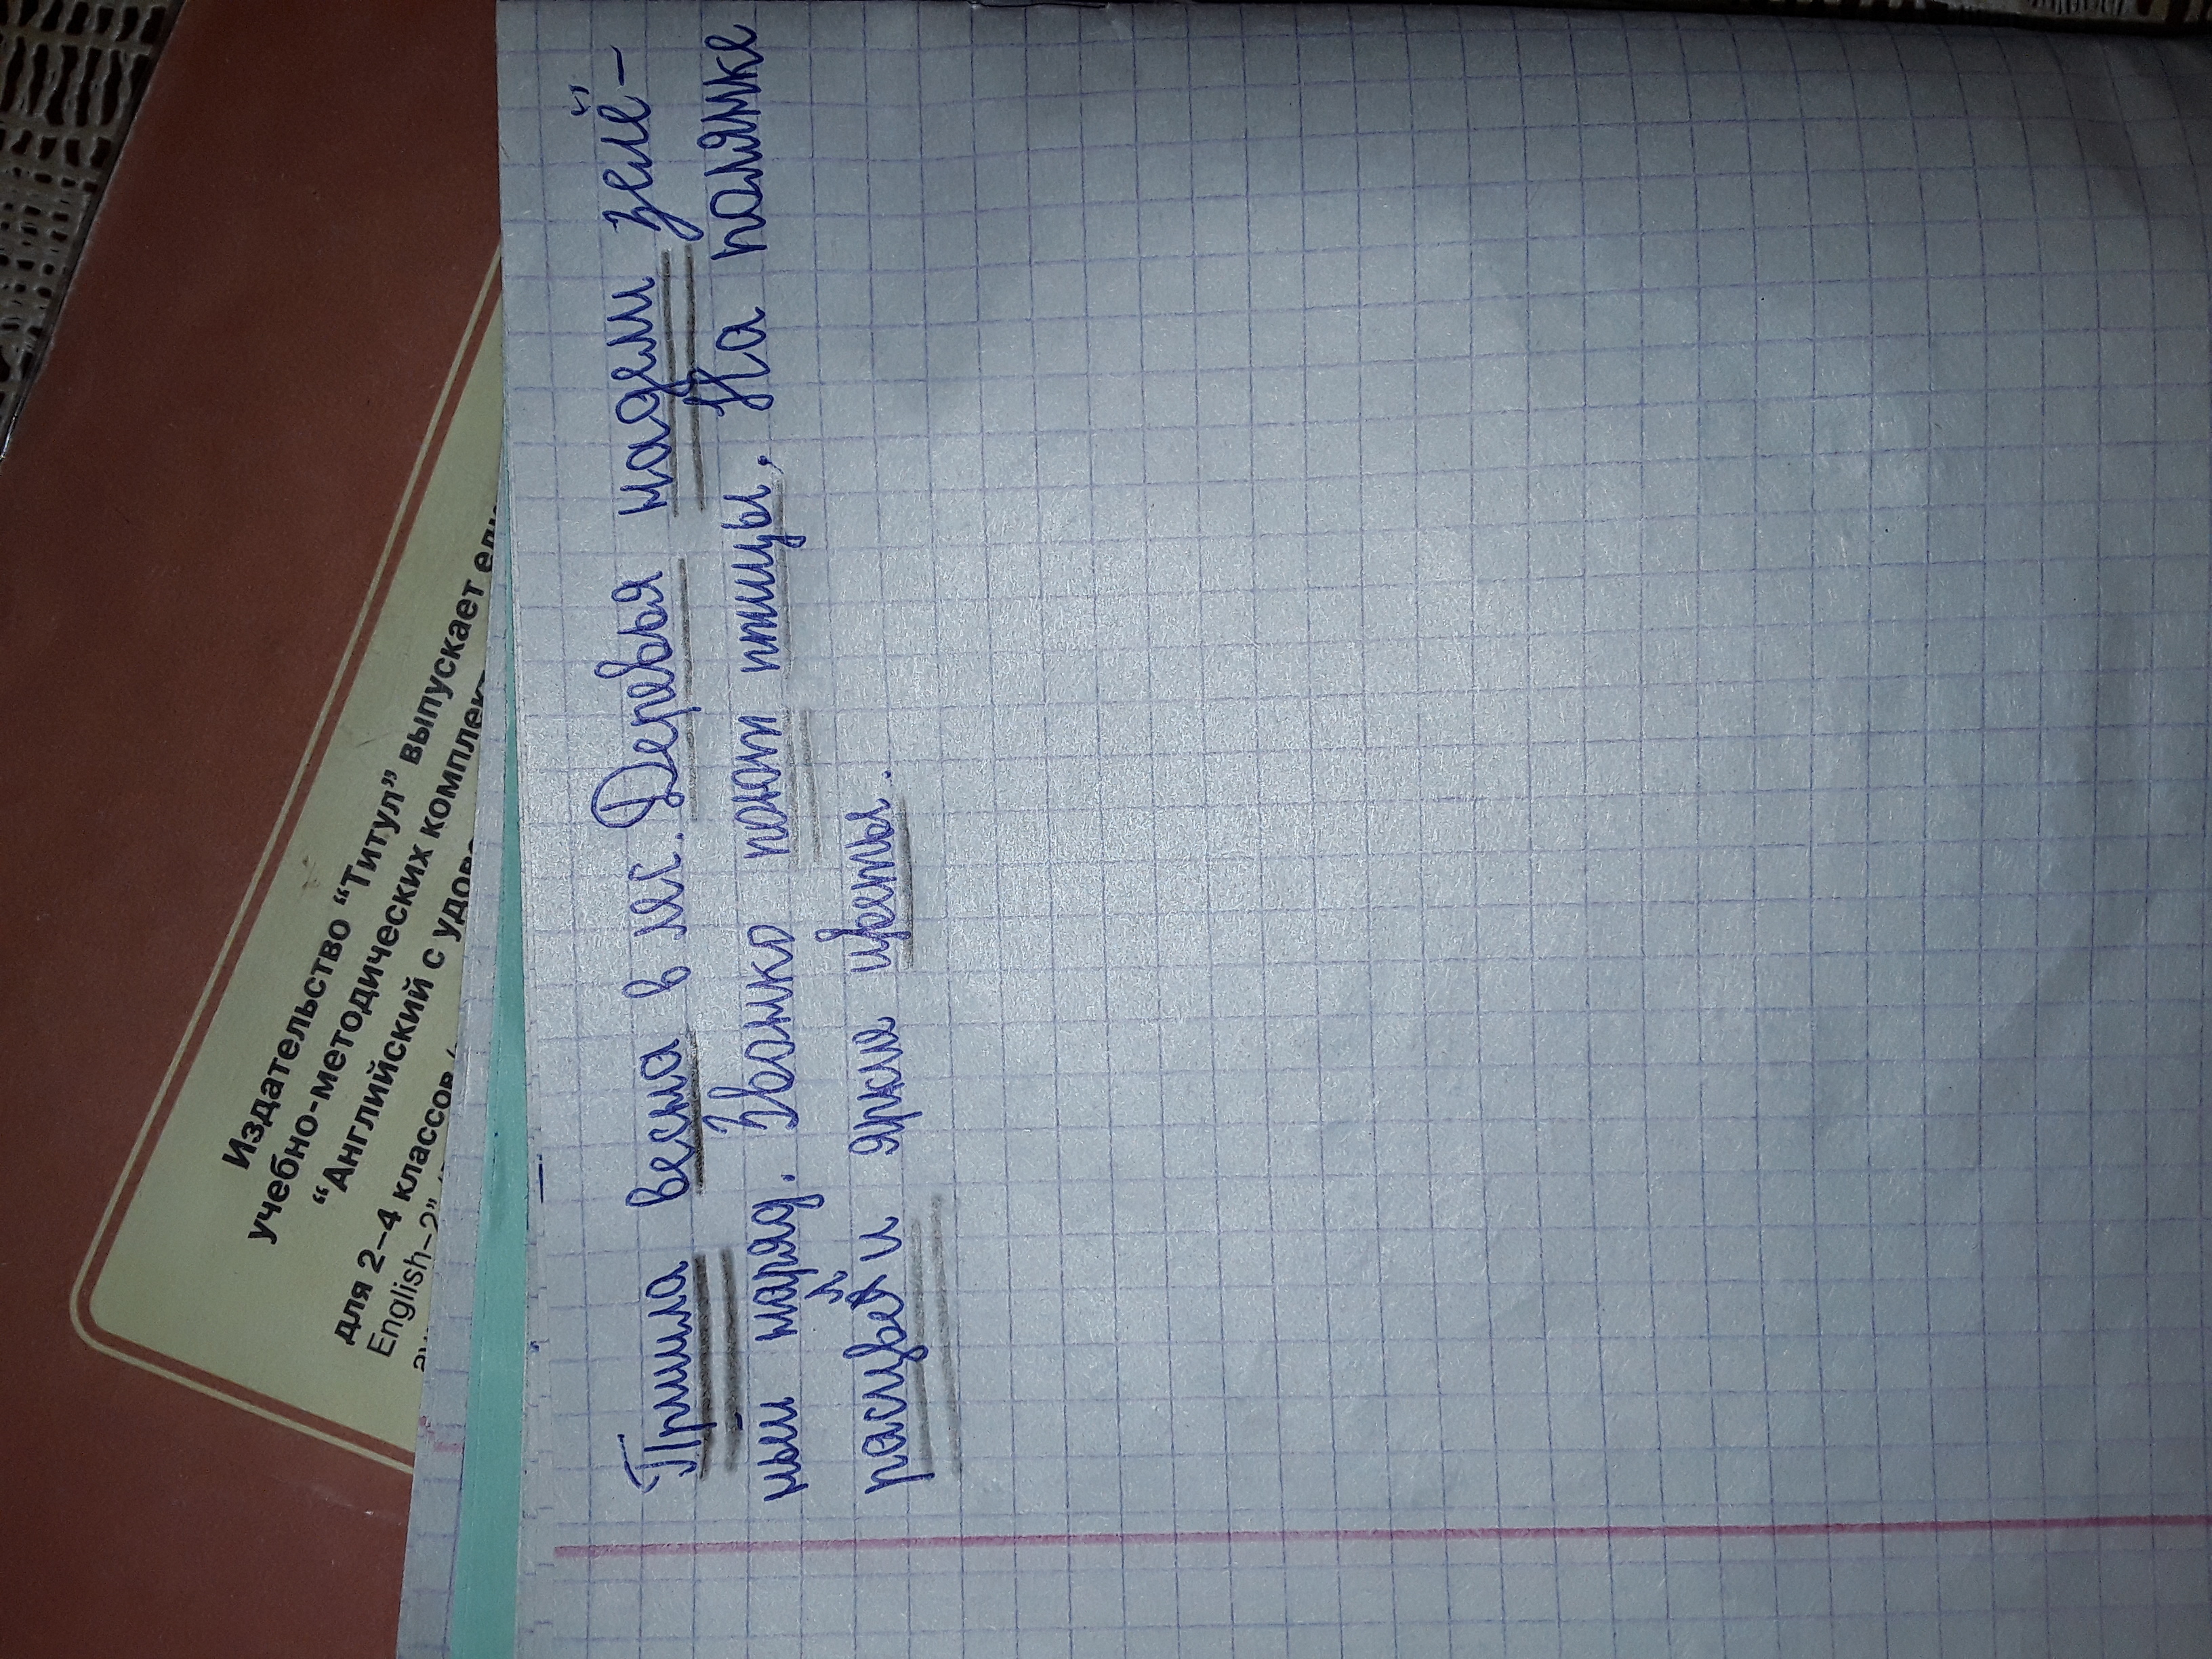 Издательство “Титул” выпускает
учебно-методических
“Английский с
для 2–4 классов
English–2”
Пришла весна в лес. Деревья надели зелё-
ный наряд. Звонко поют птицы. На полянке
расцвели яркие цветы.